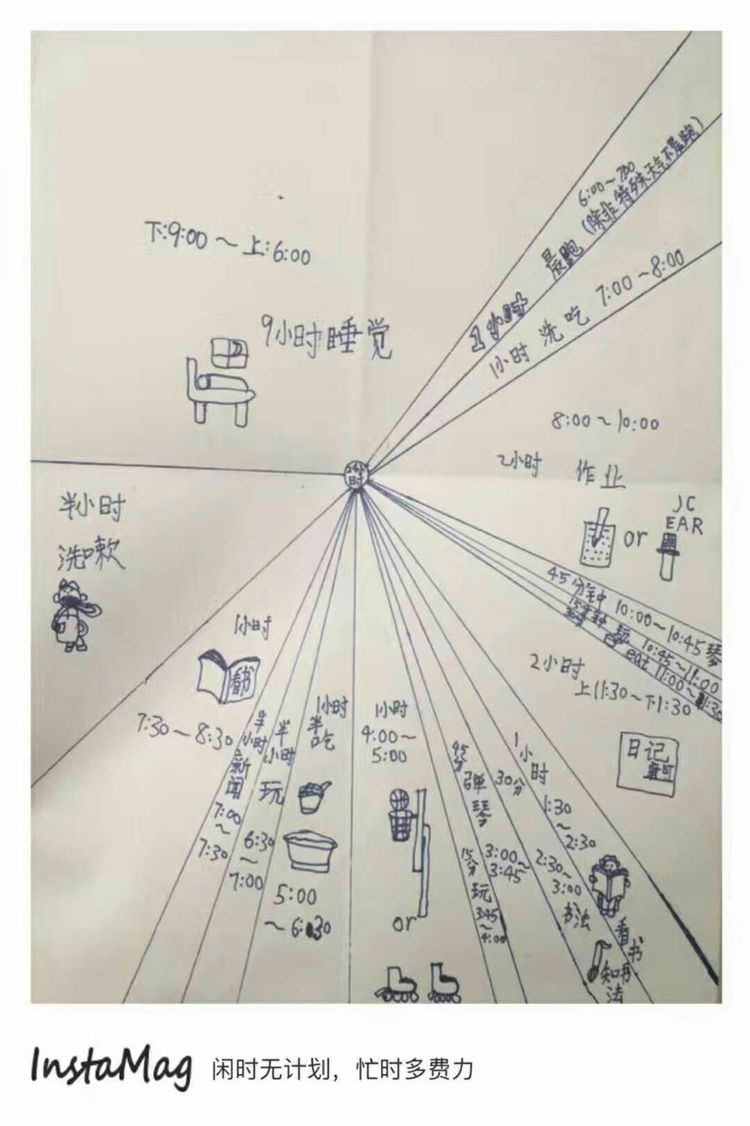 下:9:00～上:6:00
9小时睡觉
小时
6:00～7:00
1小时 晨跑(除非特殊天气不晨跑)
1小时 洗 吃 7:00～8:00
8:00～10:00
2小时 作业
or
JC
EAR
45分钟 10:00～10:45琴
15分钟 玩 10:45～11:00
eat 11:00～11:30
2小时
上11:30～下1:30
日记
1小时
1:30
～
2:30
看书
30分
2:30～
3:00
书法
45分
弹琴
3:00～
3:45
15分
玩
3:45
～4:00
1小时
4:00～
5:00
or
1小时
半
吃
5:00
～6:30
半小时
玩
6:30
～
7:00
半小时
新闻
7:00
～
7:30
1小时
看书
7:30～8:30
半小时
洗嗽
InstaMag 闲时无计划，忙时多费力